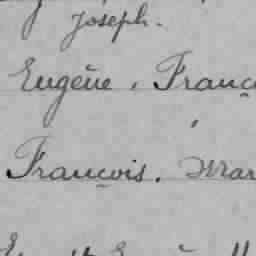 Joseph.
Eugène, Franç
François. Mar